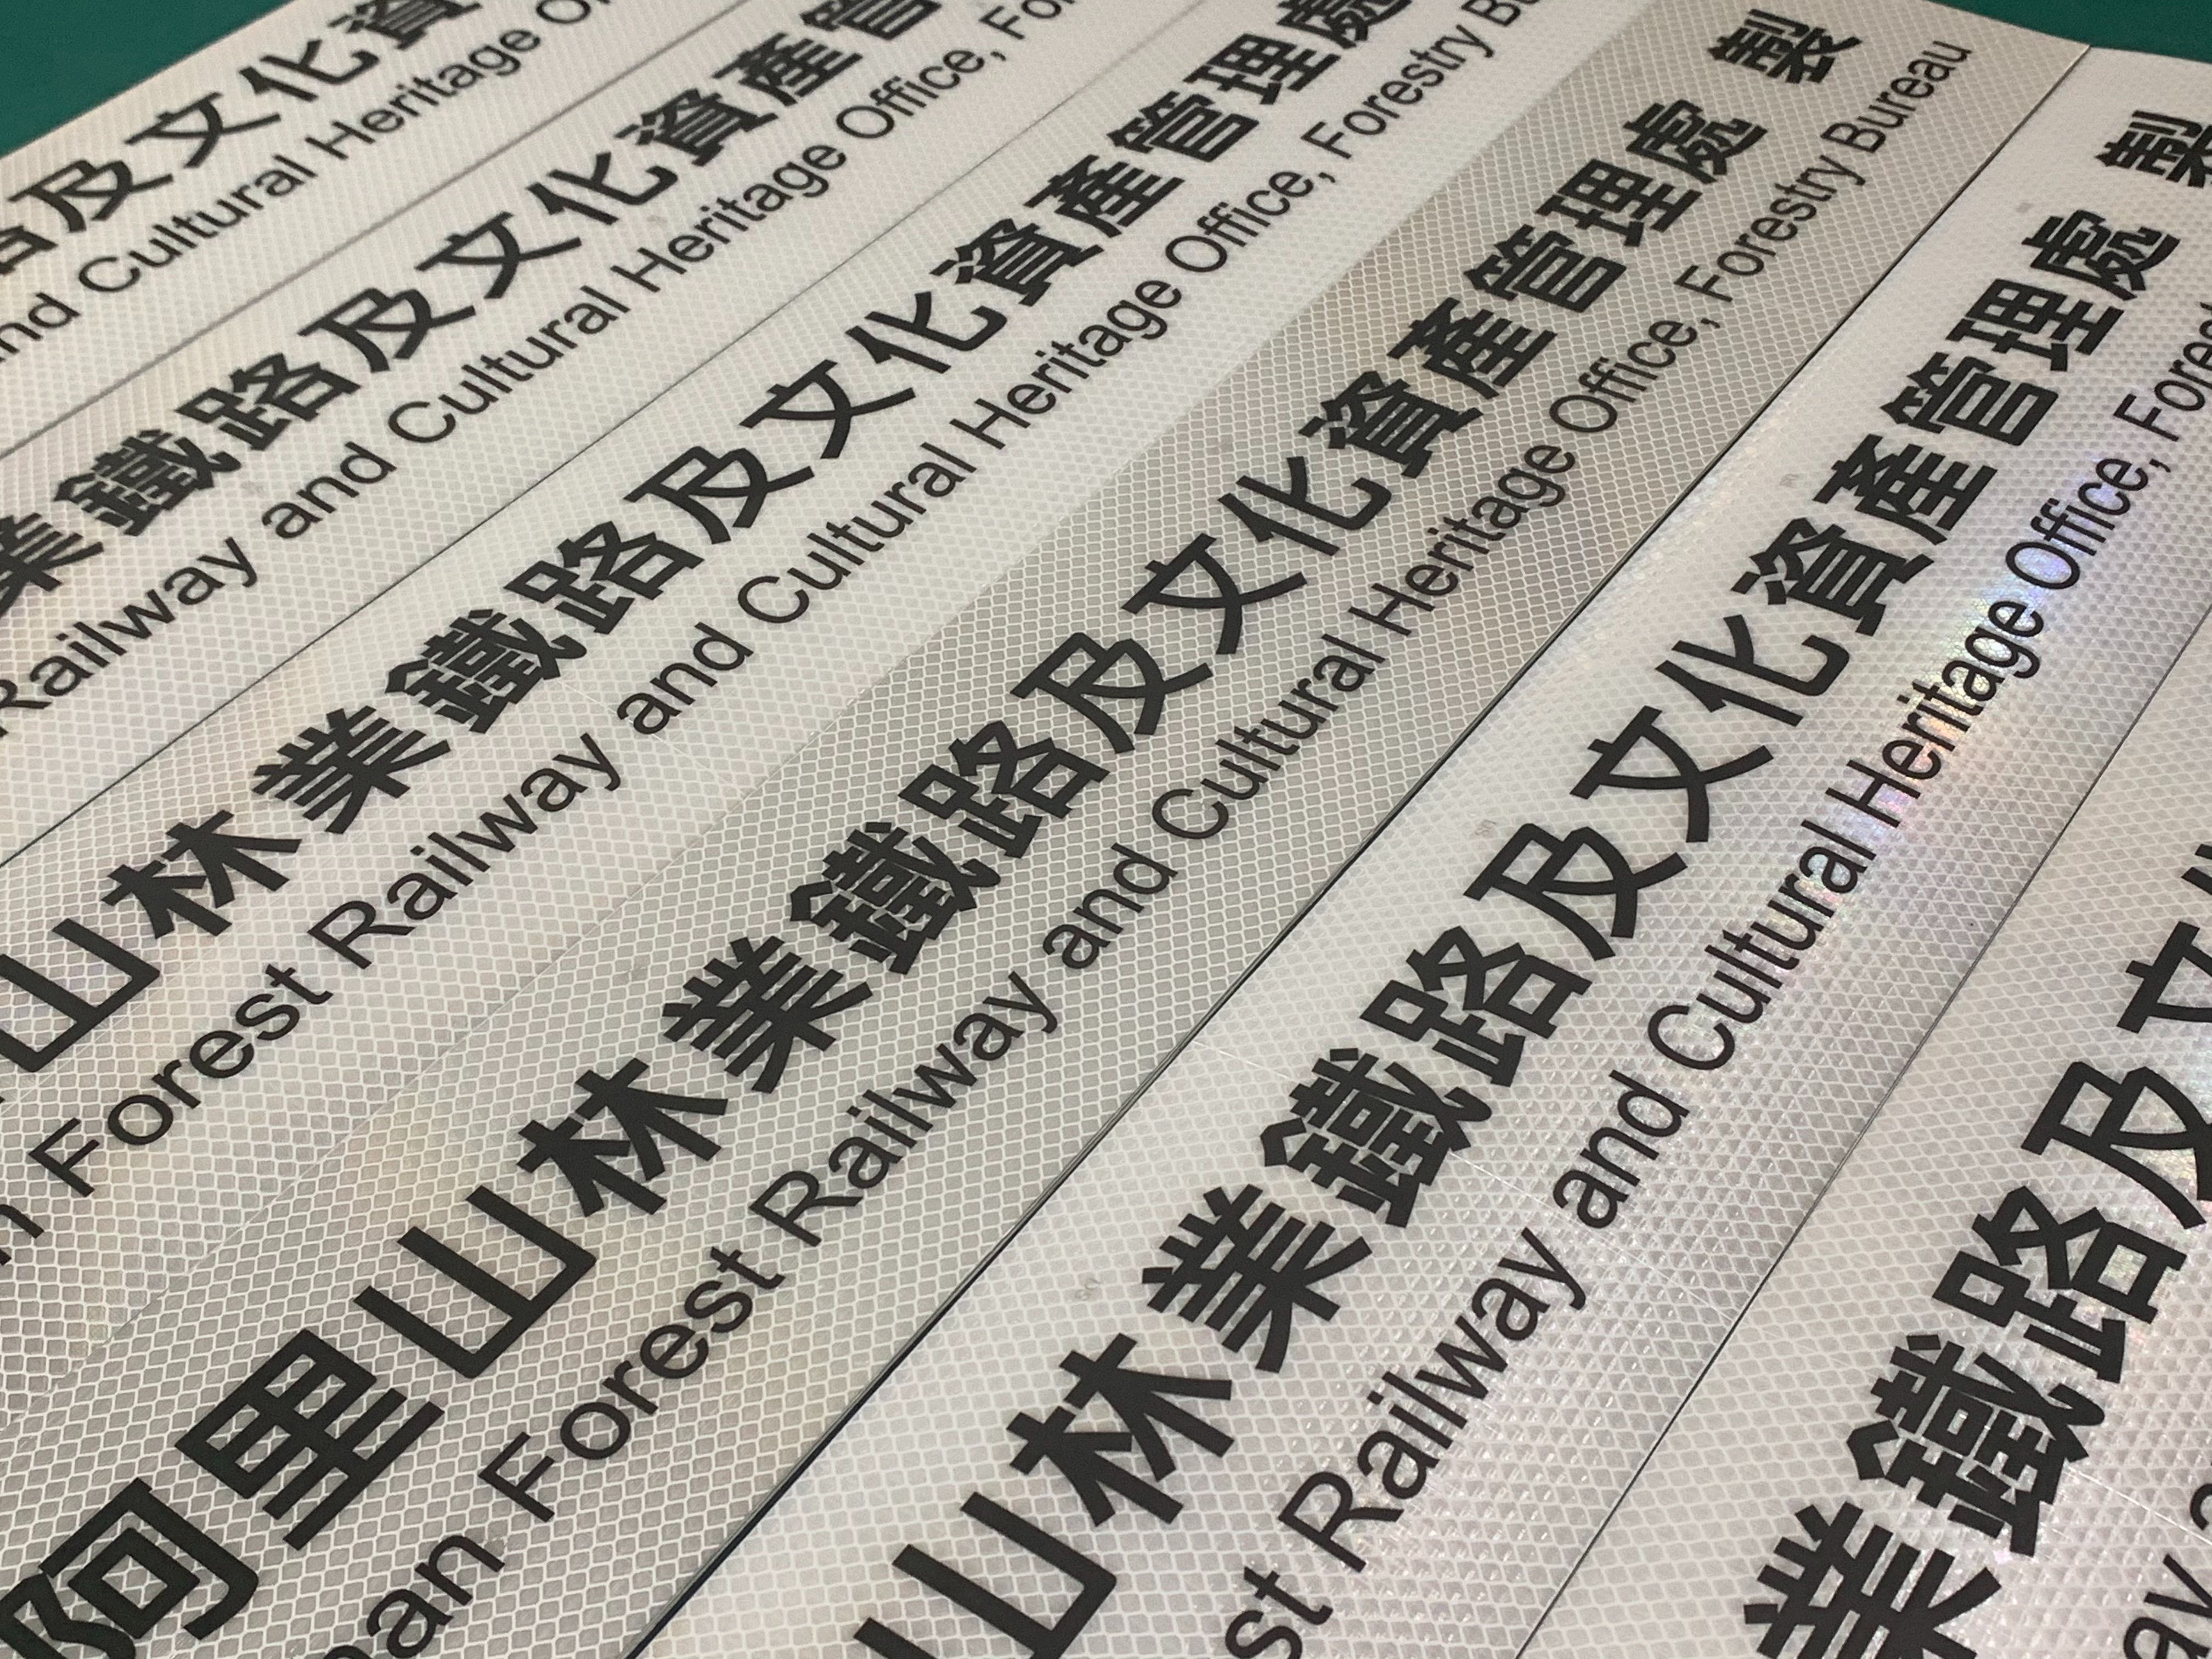 及文化資
and Cultural Heritage
業鐵路及文化資產管
Railway and Cultural Heritage Office,
山林業鐵路及文化資產管理處
Forest Railway and Cultural Heritage Office, Forestry
阿里山林業鐵路及文化資產管理處 製
Forest Railway and Cultural Heritage Office, Forestry Bureau
山林業鐵路及文化資產管理處 製
Railway and Cultural Heritage Office,
業鐵路及文